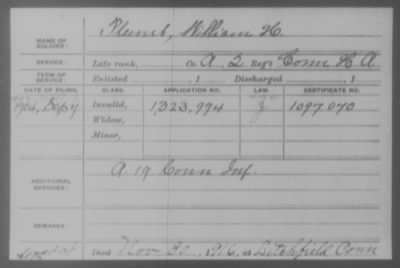 NAME OF SOLDIER: Plumb, William H.
SERVICE: Late rank, Co. A, 2 Reg't Conn H A
TERM OF SERVICE: Enlisted , 1 Discharged , 1
DATE OF FILING. CLASS. APPLICATION NO. LAW. CERTIFICATE NO.
1904, Sep 7 Invalid, 1,323,994 1097070
Widow,
Minor,
ADDITIONAL SERVICES: A. 19 Conn Inf.
REMARKS:
Died Nov 30, 1916, at Litchfield Conn